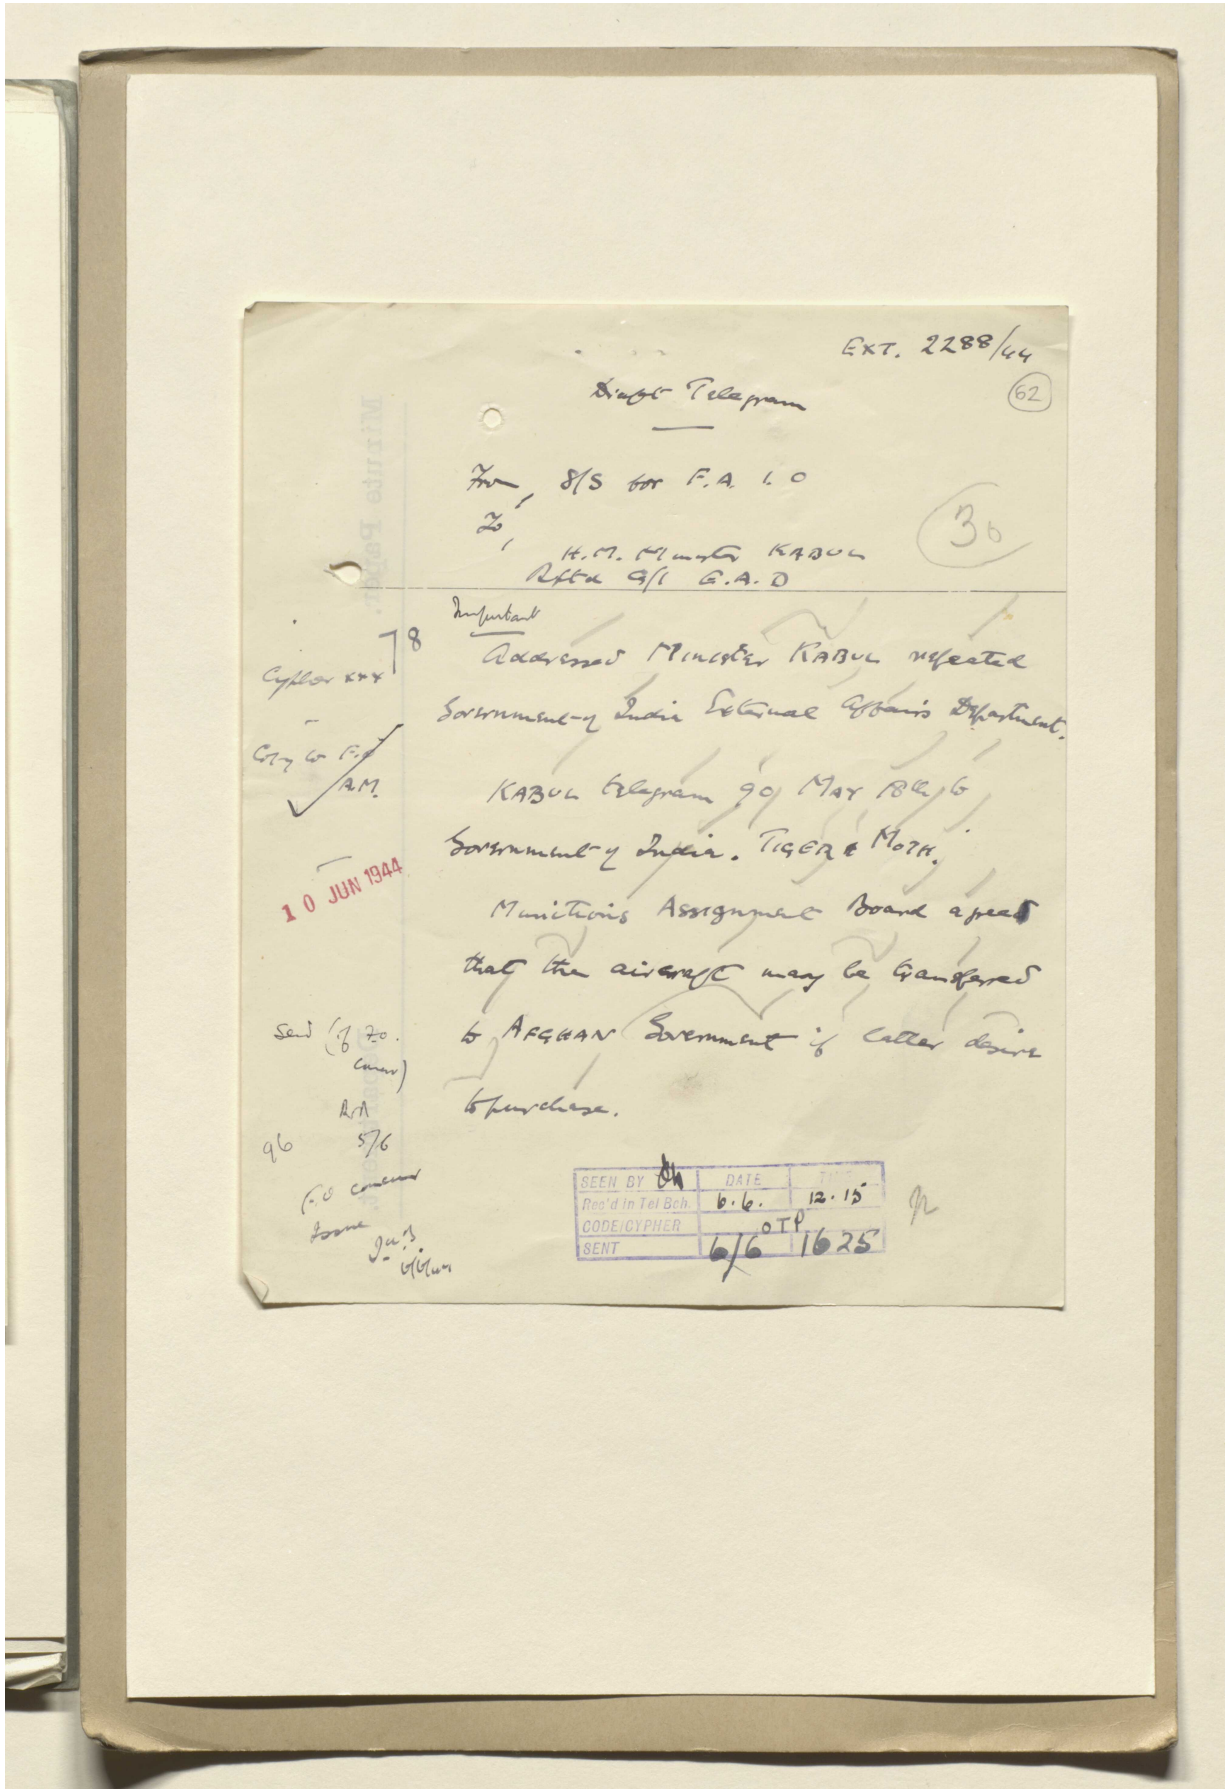 EXT. 2288/44
62
Draft Telegram
From, S/S for F.A. I.O
To,
30
H.M. Minister KABUL
Rptd G/I E.A.D
Important
Addressed Minister KABUL repeated
Government of India External Affairs Department.
KABUL telegram 90 May 18th to
Government of India. TIGER MOTH.
Munitions Assignment Board agreed
that the aircraft may be transferred
to AFGHAN Government if latter desire
to purchase.
78
Cypher xxx
Copy to F.O
A.M.
10 JUN 1944
Send (if F.O.
concur)
5/6
F.O concur
Issue
6/6/44
SEEN BY DATE TIME
Rec'd in Tel Bch. 6.6. 12.15
CODE/CYPHER OTP
SENT 6/6 1625
Minute Paper.
Department.